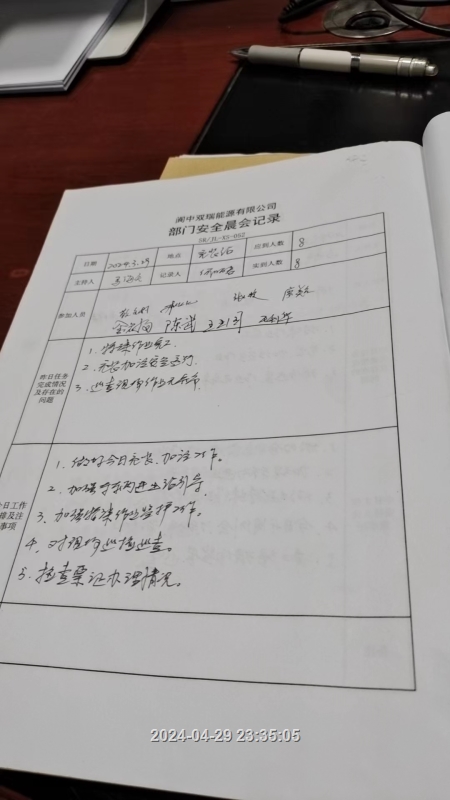 阆中双瑞能源有限公司
部门安全晨会记录
SR/JL-XS-052
日期 2024.3.29 地点 充装站 应到人数 8
主持人 记录人 实到人数 8
参加人员
昨日任务完成情况及存在的问题
1. 特殊作业完工
2. 充装加注安全运行
3. 巡查现场作业无异常
日工作排及注事项
1. 做好今日充装、加注工作。
2. 加强车辆进出站引导。
3、加强特殊作业监护工作。
4、对现场巡检巡查。
5、检查票证办理情况。
2024-04-29 23:35:05